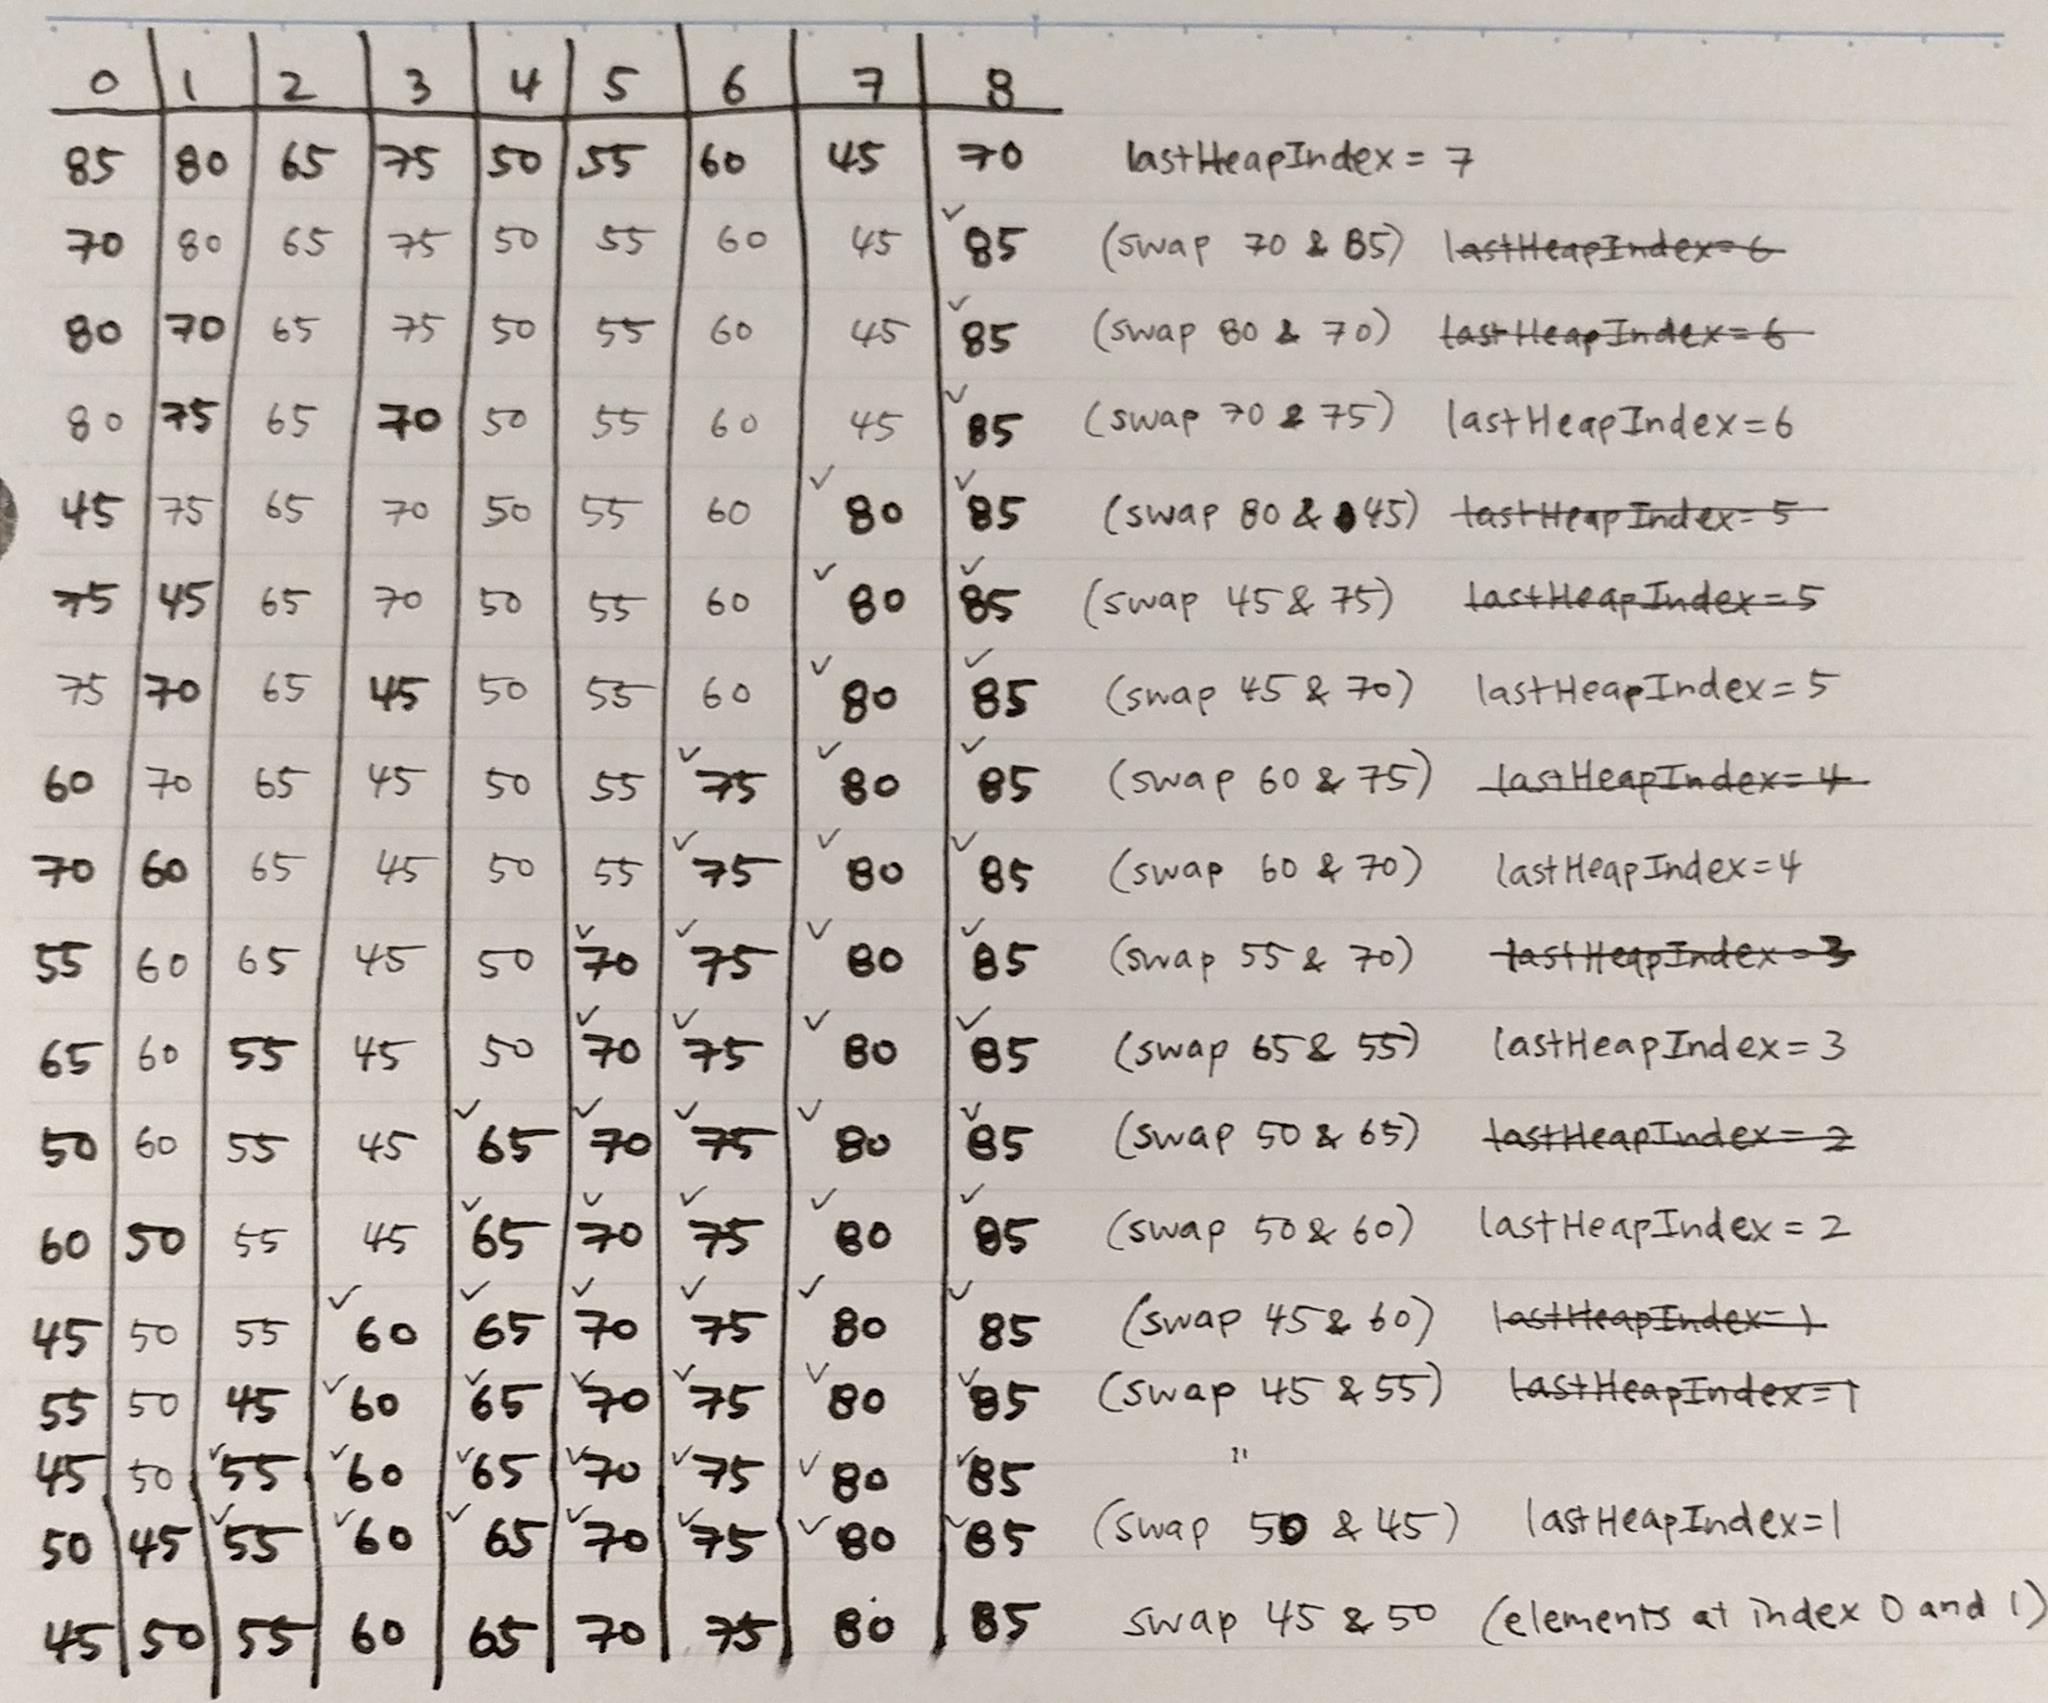 0 1 2 3 4 5 6 7 8
85 80 65 75 50 55 60 45 70 lastHeapIndex = 7
70 80 65 75 50 55 60 45 ✓85 (swap 70 & 85) lastHeapIndex=6
80 70 65 75 50 55 60 45 ✓85 (swap 80 & 70) lastHeapIndex=6
80 75 65 70 50 55 60 45 ✓85 (swap 70 & 75) lastHeapIndex=6
45 75 65 70 50 55 60 ✓80 ✓85 (swap 80 & 45) lastHeapIndex=5
75 45 65 70 50 55 60 ✓80 ✓85 (swap 45 & 75) lastHeapIndex=5
75 70 65 45 50 55 60 ✓80 ✓85 (swap 45 & 70) lastHeapIndex=5
60 70 65 45 50 55 ✓75 ✓80 ✓85 (swap 60 & 75) lastHeapIndex=4
70 60 65 45 50 55 ✓75 ✓80 ✓85 (swap 60 & 70) lastHeapIndex=4
55 60 65 45 50 ✓70 ✓75 ✓80 ✓85 (swap 55 & 70) lastHeapIndex=3
65 60 55 45 50 ✓70 ✓75 ✓80 ✓85 (swap 65 & 55) lastHeapIndex=3
50 60 55 45 ✓65 ✓70 ✓75 ✓80 ✓85 (swap 50 & 65) lastHeapIndex=2
60 50 55 45 ✓65 ✓70 ✓75 ✓80 ✓85 (swap 50 & 60) lastHeapIndex=2
45 50 55 ✓60 ✓65 ✓70 ✓75 ✓80 ✓85 (swap 45 & 60) lastHeapIndex=1
55 50 45 ✓60 ✓65 ✓70 ✓75 ✓80 ✓85 (swap 45 & 55) lastHeapIndex=1
45 50 ✓55 ✓60 ✓65 ✓70 ✓75 ✓80 ✓85 "
50 45 ✓55 ✓60 ✓65 ✓70 ✓75 ✓80 ✓85 (swap 50 & 45) lastHeapIndex=1
45 50 55 60 65 70 75 80 85 swap 45 & 50 (elements at index 0 and 1)